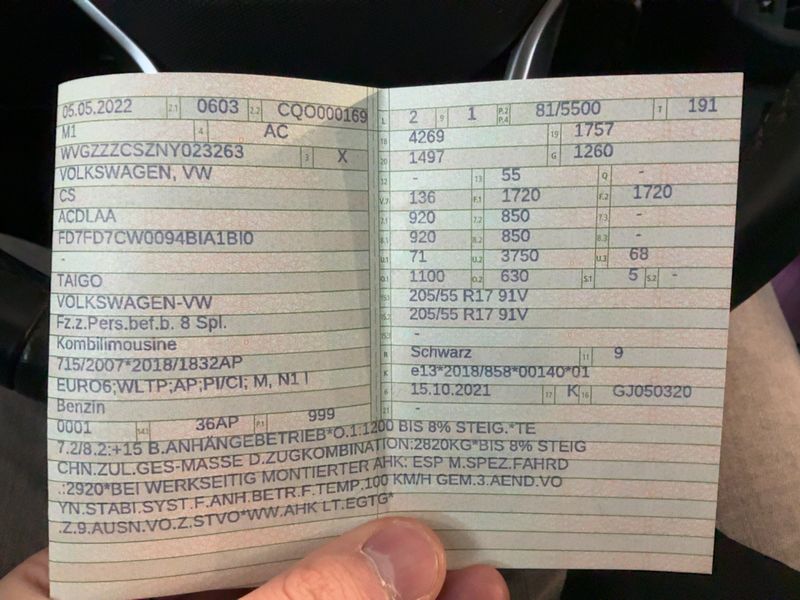 05.05.2022 2.1 0603 2.2 CQO000169
M1 4 AC
WVGZZZCSZNY023263 3 X
VOLKSWAGEN, VW
CS
ACDLAA
FD7FD7CW0094BIA1BI0
-
TAIGO
VOLKSWAGEN-VW
Fz.z.Pers.bef.b. 8 Spl.
Kombilimousine
715/2007*2018/1832AP
EURO6;WLTP;AP;PI/CI; M, N1 I
Benzin
0001 14.1 36AP P.1 999
L 2 9 1 P.2 P.4 81/5500 T 191
18 4269 19 1757
20 1497 G 1260
12 - 13 55 Q -
V.7 136 F.1 1720 F.2 1720
7.1 920 7.2 850 7.3 -
8.1 920 8.2 850 8.3 -
U.1 71 U.2 3750 U.3 68
O.1 1100 O.2 630 S.1 5 S.2 -
15.1 205/55 R17 91V
15.2 205/55 R17 91V
15.3 -
R Schwarz 11 9
K e13*2018/858*00140*01
6 15.10.2021 17 K 16 GJ050320
21 -
7.2/8.2:+15 B.ANHÄNGEBETRIEB*O.1:1200 BIS 8% STEIG.*TE
CHN.ZUL.GES-MASSE D.ZUGKOMBINATION:2820KG*BIS 8% STEIG
.:2920*BEI WERKSEITIG MONTIERTER AHK: ESP M.SPEZ.FAHRD
YN.STABI.SYST.F.ANH.BETR.F.TEMP.100 KM/H GEM.3.AEND.VO
.Z.9.AUSN.VO.Z.STVO*WW.AHK LT.EGTG*